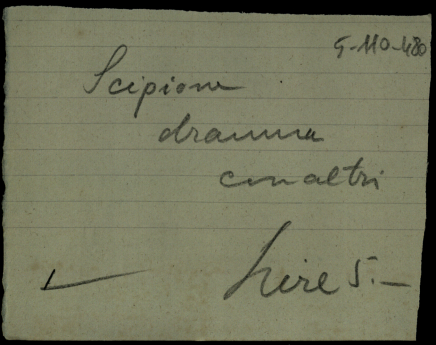 5-110-480
Scipione
dramma
con altri
Lire 5.—